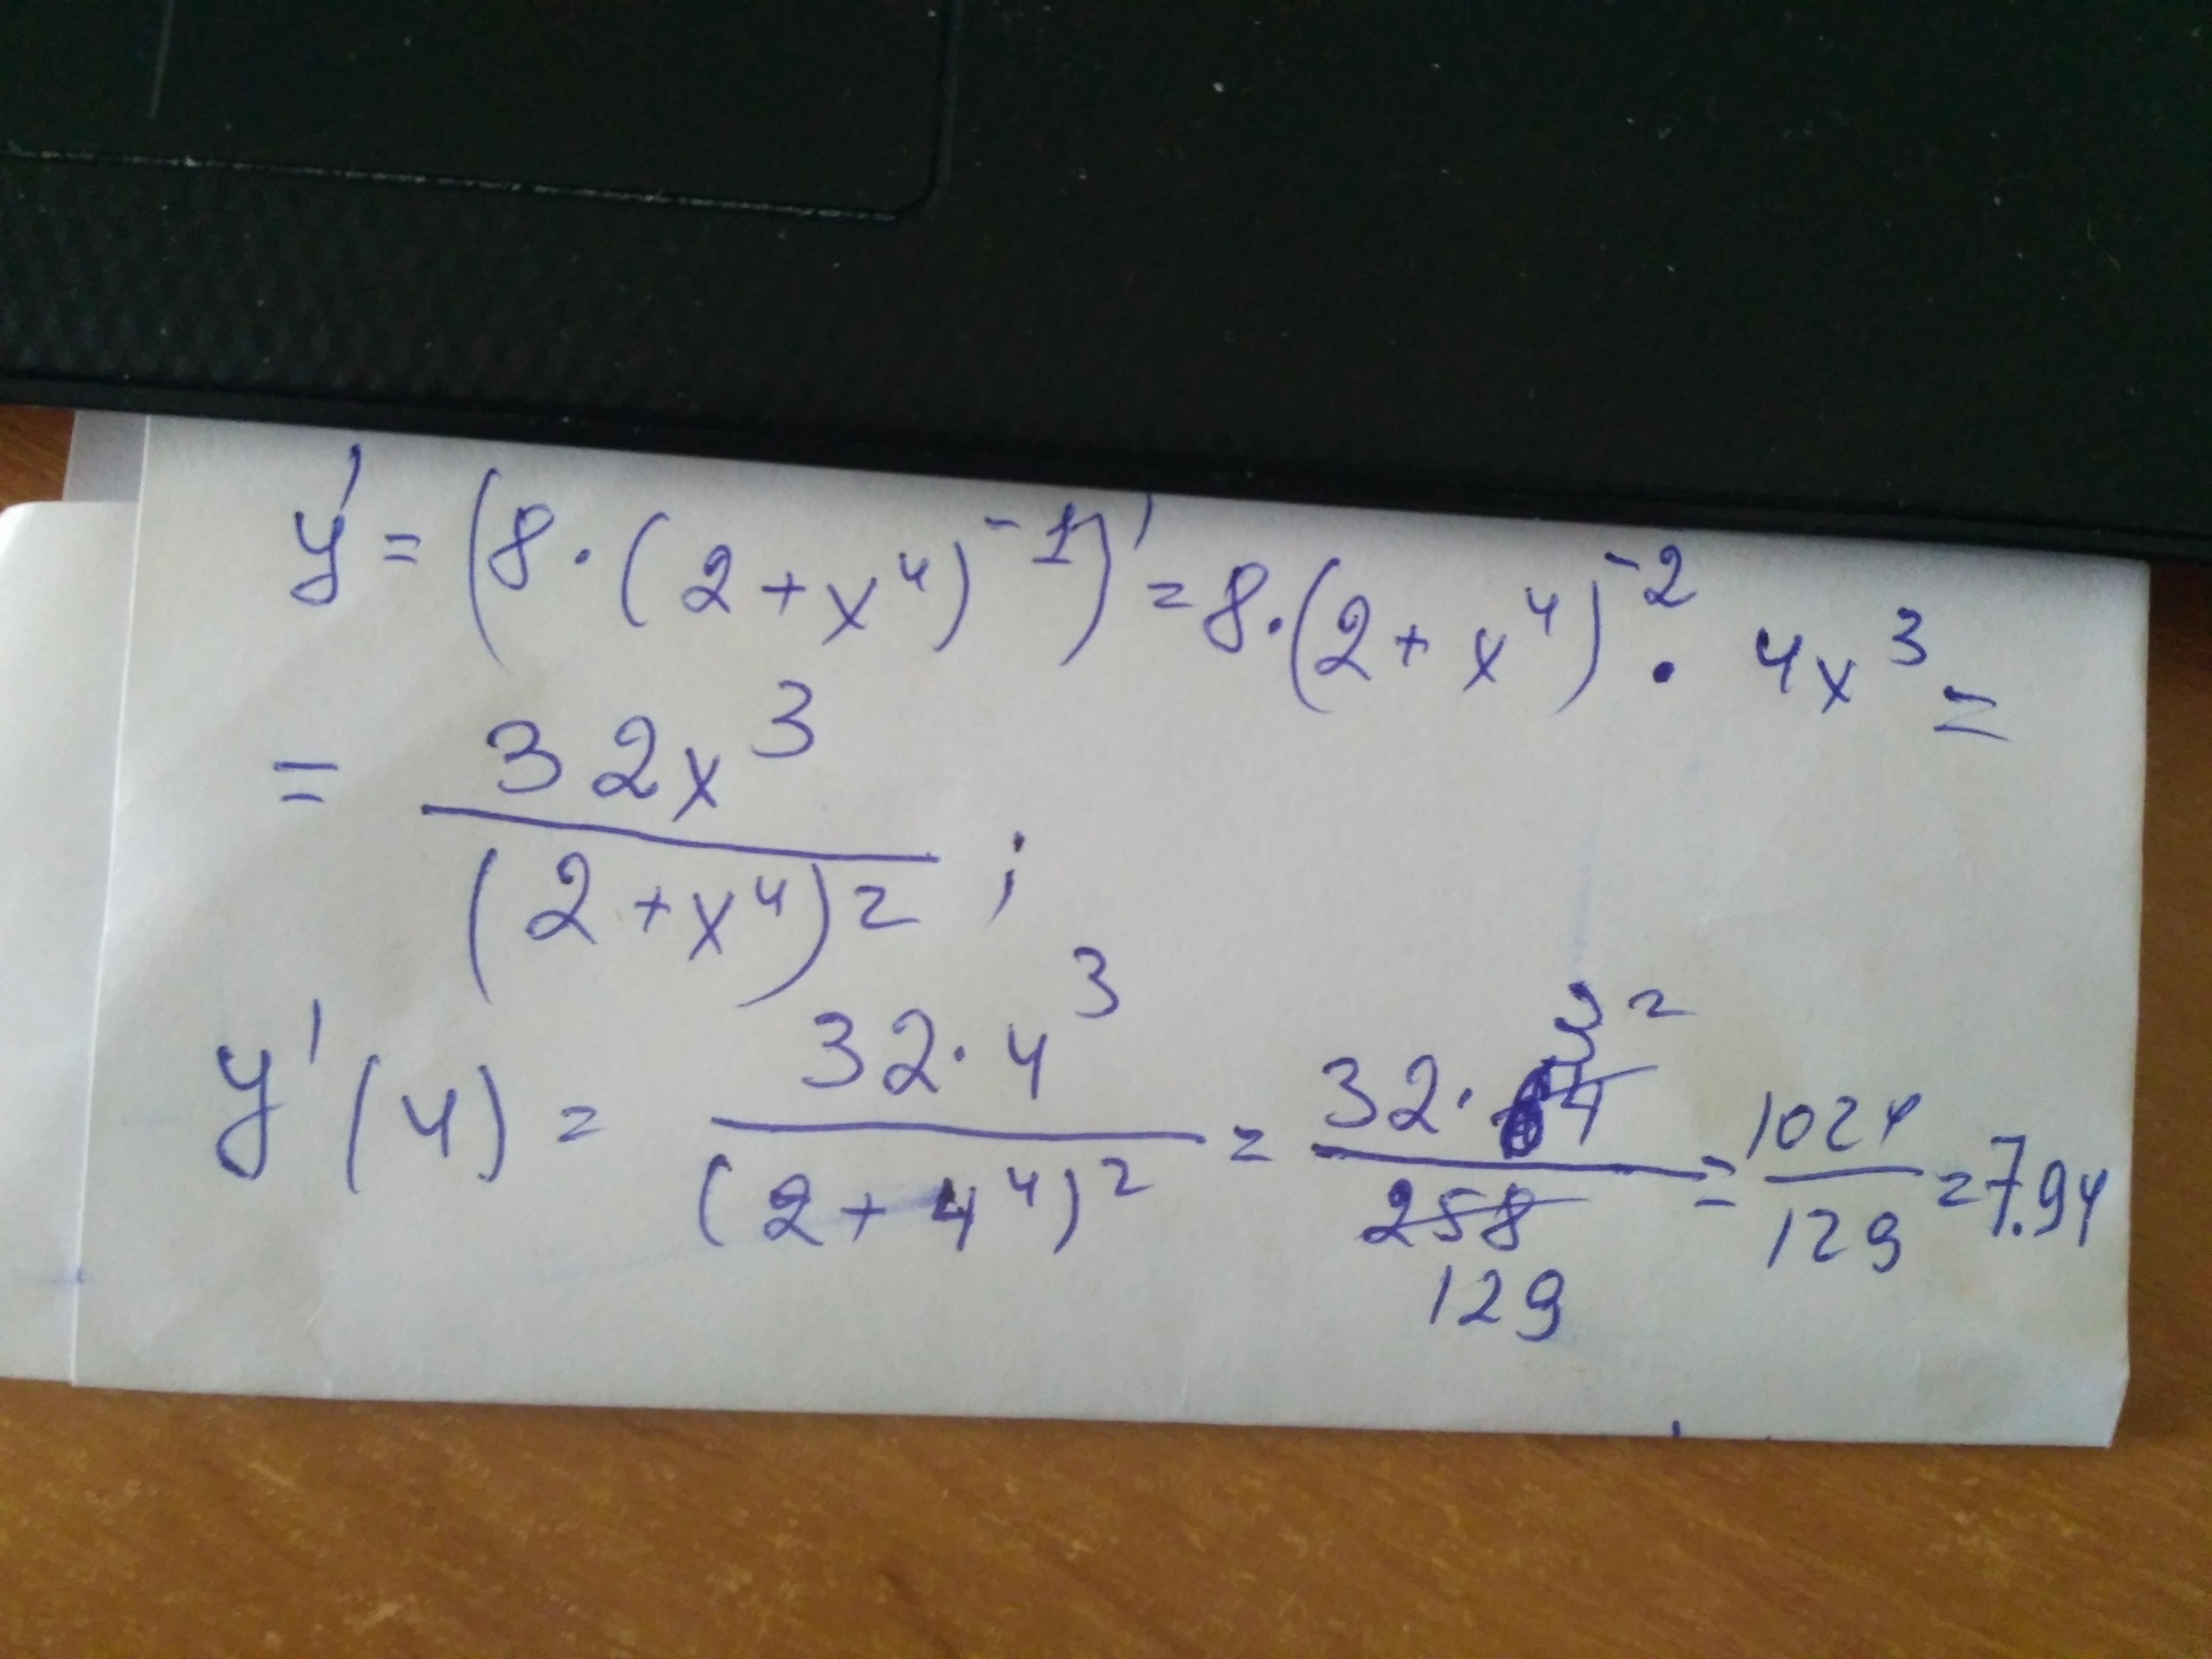 y' = (8·(2+x⁴)⁻¹)' = 8·(2+x⁴)⁻² · 4x³ =
= 32x³/(2+x⁴)² ;
y'(4) = 32·4³/(2+4⁴)² = 32·64 32/258 129 = 1024/129 = 7.94